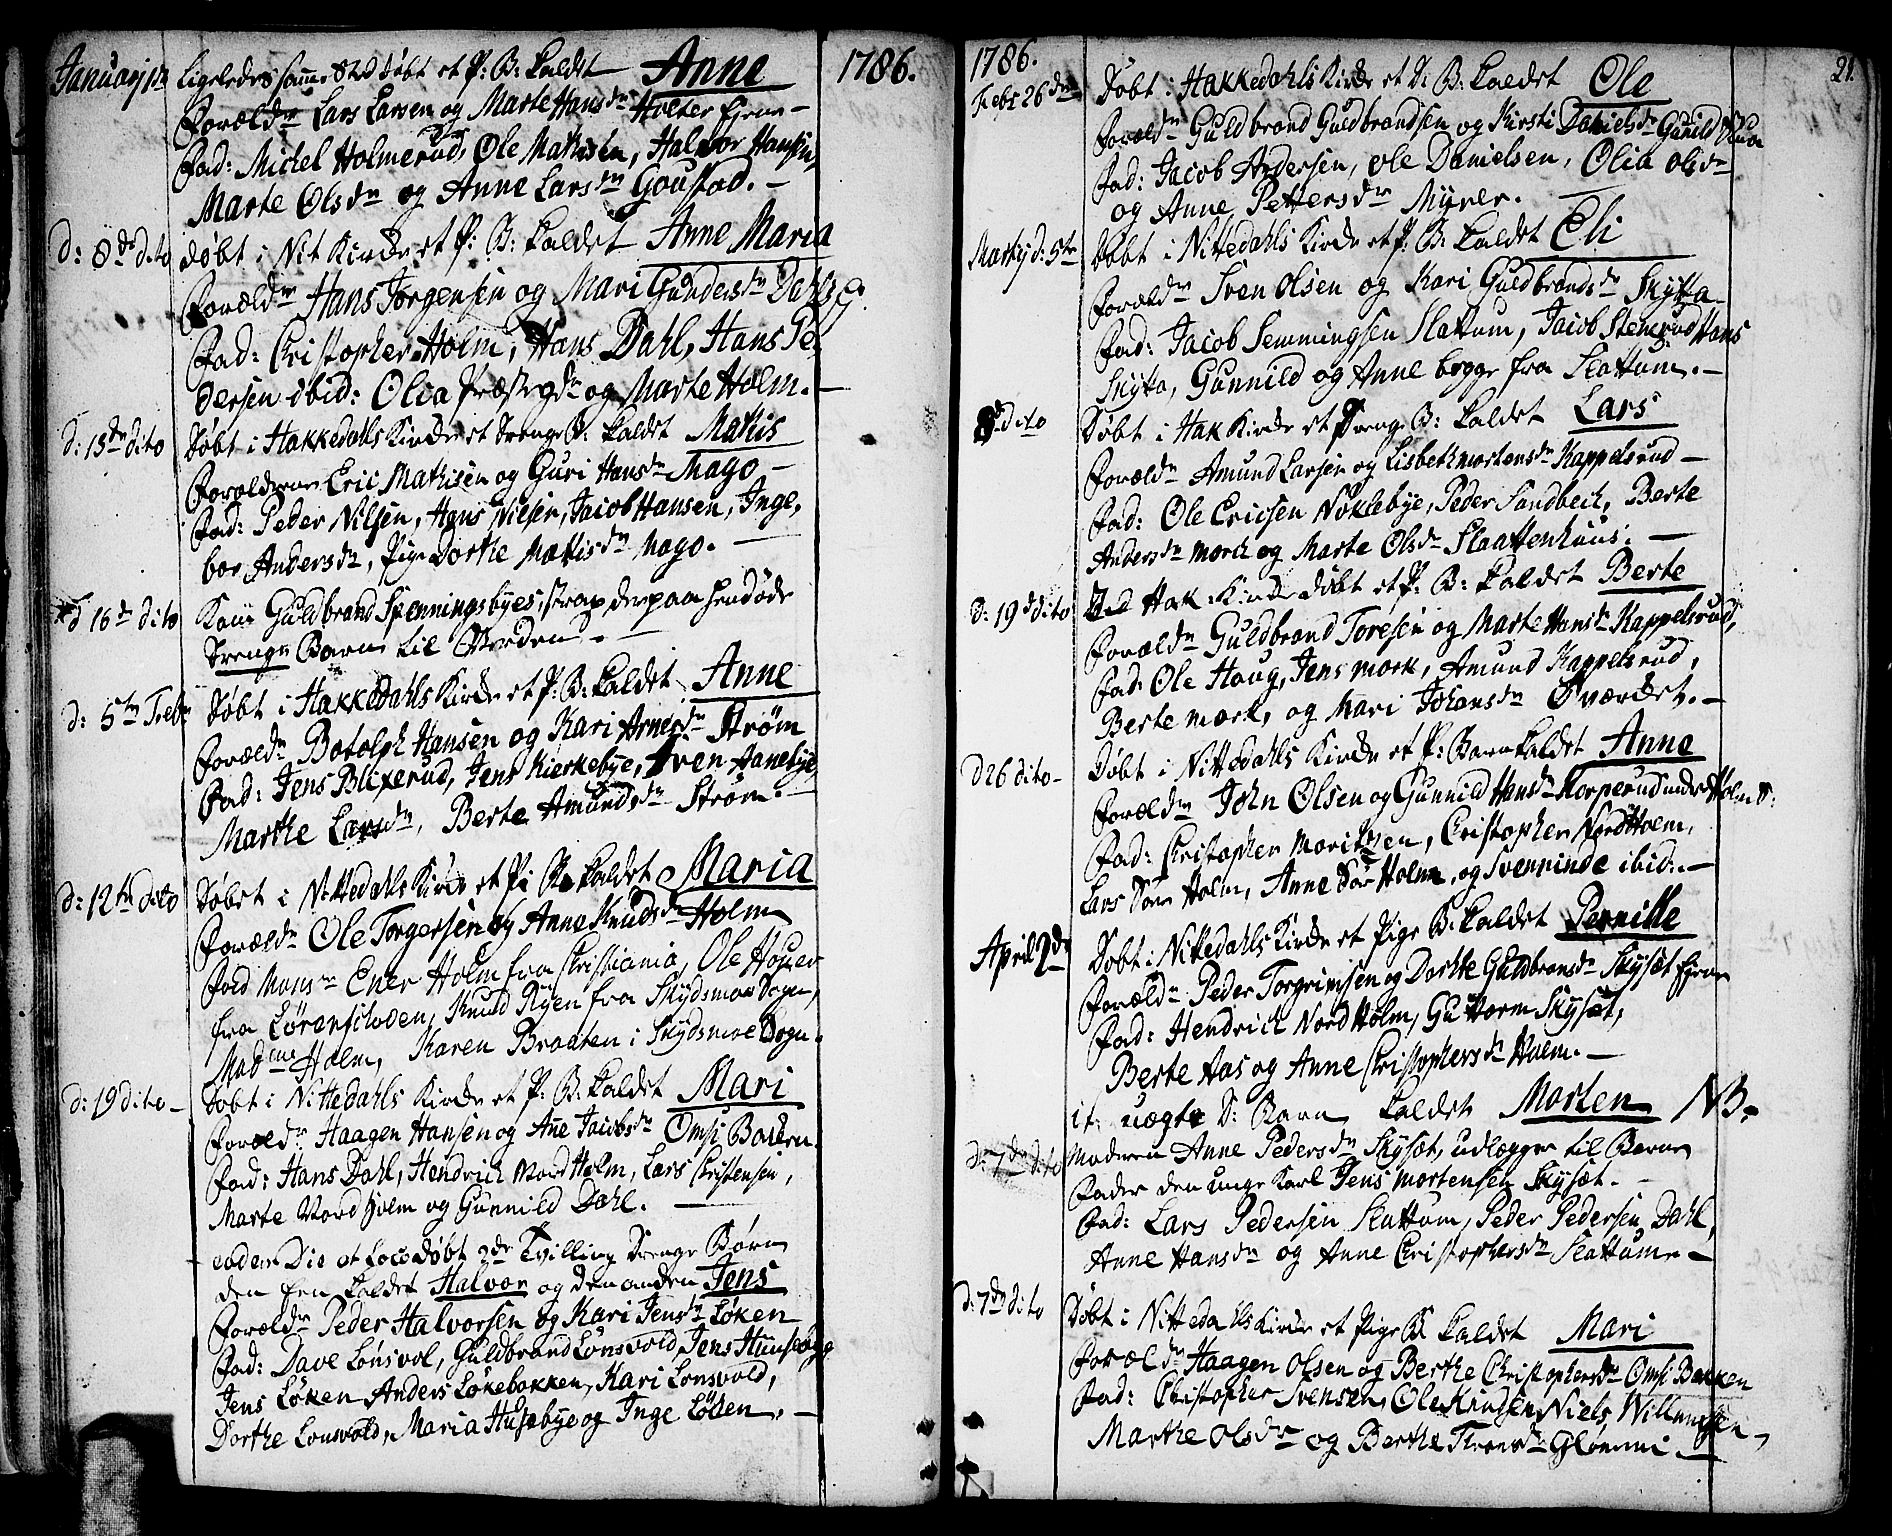 1786.
Januarj 1te Ligeledes samme Sted døbt et P: B: kaldet Anne
Foræld: Lars Larsen og Marte Hansdr Holter Ejene –
Fad: Michel Holmerud, Ole Mathisen, Halvor Hansen,
Marte Olsdr og Anne Larsdr Goustad. –
d: 8de dito døbt i Nit Kirke et P: B: kaldet Anne Maria
Foræld: Hans Jørgensen og Mari Gundersdr Dahls
Fad: Christopher Holm, Hans Dahl, Hans Pe-
dersen ibid: Olia og Marte Holm. –
d: 15de dito Døbt i Hakkedals Kirke et Drenge B: kaldet Mathis
Forældrene Eric Mathisen og Guri Hansdr Mago –
Fad: Peder Nilsen, Hans Nilsen, Jacob Hansen, Inge,
bor Andersdr, Pige Dorthe Mattisdr Mago. –
d 16de dito Kom Guldbrand Spenningsbyes
Drenge Barn til
d: 5te Febr Døbt i Hakkedahls Kirke et P: B: kaldet Anne
Foræld: Botolph Hansen og Kari Arnesdr Strøm
Fad: Jens Blixerud, Jens Kierkebye, Sven Aanebye,
Marthe Larsdr, Berte Amundsdr Strøm. –
d: 12te dito Døbt i Nittedahls Kirke et P: B: kaldet Maria
Foræld: Ole Torgersen og Anne Knudsdr Holm
Fad Monsr Ener Holm fra Christiania, Ole
fra Lørenschoven, Knud Ryen fra Skydsmoe Sogn,
Madme Holm, Karen Braaten i Skydsmoe Sogn.
d: 19 dito – Døbt i Nittedahls Kirke et P: B: kaldet Mari
Foræld: Haagen Hansen og Anne Jacobsdr Omsi Bakken
Fad: Hans Dahl, Hendrich Nord Holm, Lars Christensen,
Marte Nord Holm og Gunnild Dahl. –
eodem Die et Loco døbt 2de Tvilling Drenge Børn
den een kaldet Halvor og den anden Jens
Foræld: Peder Halvorsen og Kari Jensdr Løken
Fad: Dave Lonsvol, Guldbrand Lønsvold, Jens
Jens Løken, Anders Løkebakken, Kari Lonsvold,
Dorthe Lonsvold, Maria Husebye og Inge Løken. –
1786.
21.
Febr 26de Døbt i Hakkedahls Kirke et D: B: kaldet Ole
Foræld: Guldbrand Guldbrandsen og Kirsti Danielsdr
Fad: Jacob Andersen, Ole Danielsen, Olia Olsdr
og Anne Pettersdr Myrer.
Martij d: 5te Døbt i Nittedahls Kirke et P: B: kaldet Eli
Foræld: Sven Olsen og Kari Guldbrandsdr Skytta
Fad: Jacob Semmingsen Slattum, Jacob Stenrud Hans
Skytta, Gunnild og Anne begge fra Slattum. –
dito Døbt i Hak Kirke et Drenge B: kaldet Lars
Foræld: Amund Larsen og Lisbeth Mortensdr Kappelsrud –
Fad: Ole Ericsen Nøklebye, Peder Sandbech, Berte
Andersdr Morch og Marte Olsdr Slaattenhuus. –
d: 19de dito Ved Hak Kirke døbt et P: B: kaldet Berte
Foræld: Guldbrand Toresen og Marte Hansdr Kappelsrud,
Fad. Ole Haug, Jens Mork, Amund Kappelsrud,
Berte Mørk, og Mari Johansdr
d 26 dito – Døbt i Nittedahls Kirke et P: Barn kaldet Anne
Foræld: John Olsen og Gunnild Hansdr Korperud under Holm S:
Fad: Christopher Moritzen, Christopher Nord Holm,
Lars Søn Holm, Anne Sør Holm, og Svenninde ibid. –
April 2de Døbt i Nittedahls Kirke et Pige B: kaldet Pernille
Foræld: Peder Torgrimsen og Dorthe Guldbransdr Skysæt Ejene
Fad: Hendrich Nord Holm, Guttorm Skysæt,
Berte Aas og Anne Christophersdr Holm. –
it: uægte D: Barn kaldet Morten NB.
d: 7de dito Moderen Anne Pedersdr Skysæt, udlægger til Barne
Fader den unge Karl Jens Mortensen Skysæt. –
Fad: Lars Pedersen Slattum, Peder Pedersen Dahl,
Anne Hansdr og Anne Christophersdr Slattum. –
d: 7de dito Døbt i Nittedahls Kirke et Pige B: kaldet Mari
Foræld: Haagen Olsen og Berthe Christophersdr Omsi Bakken
Fad: Christopher Svensen, Ole Knudsen, Niels Willumsen,
Marthe Olsdr og Berthe Glømmi –